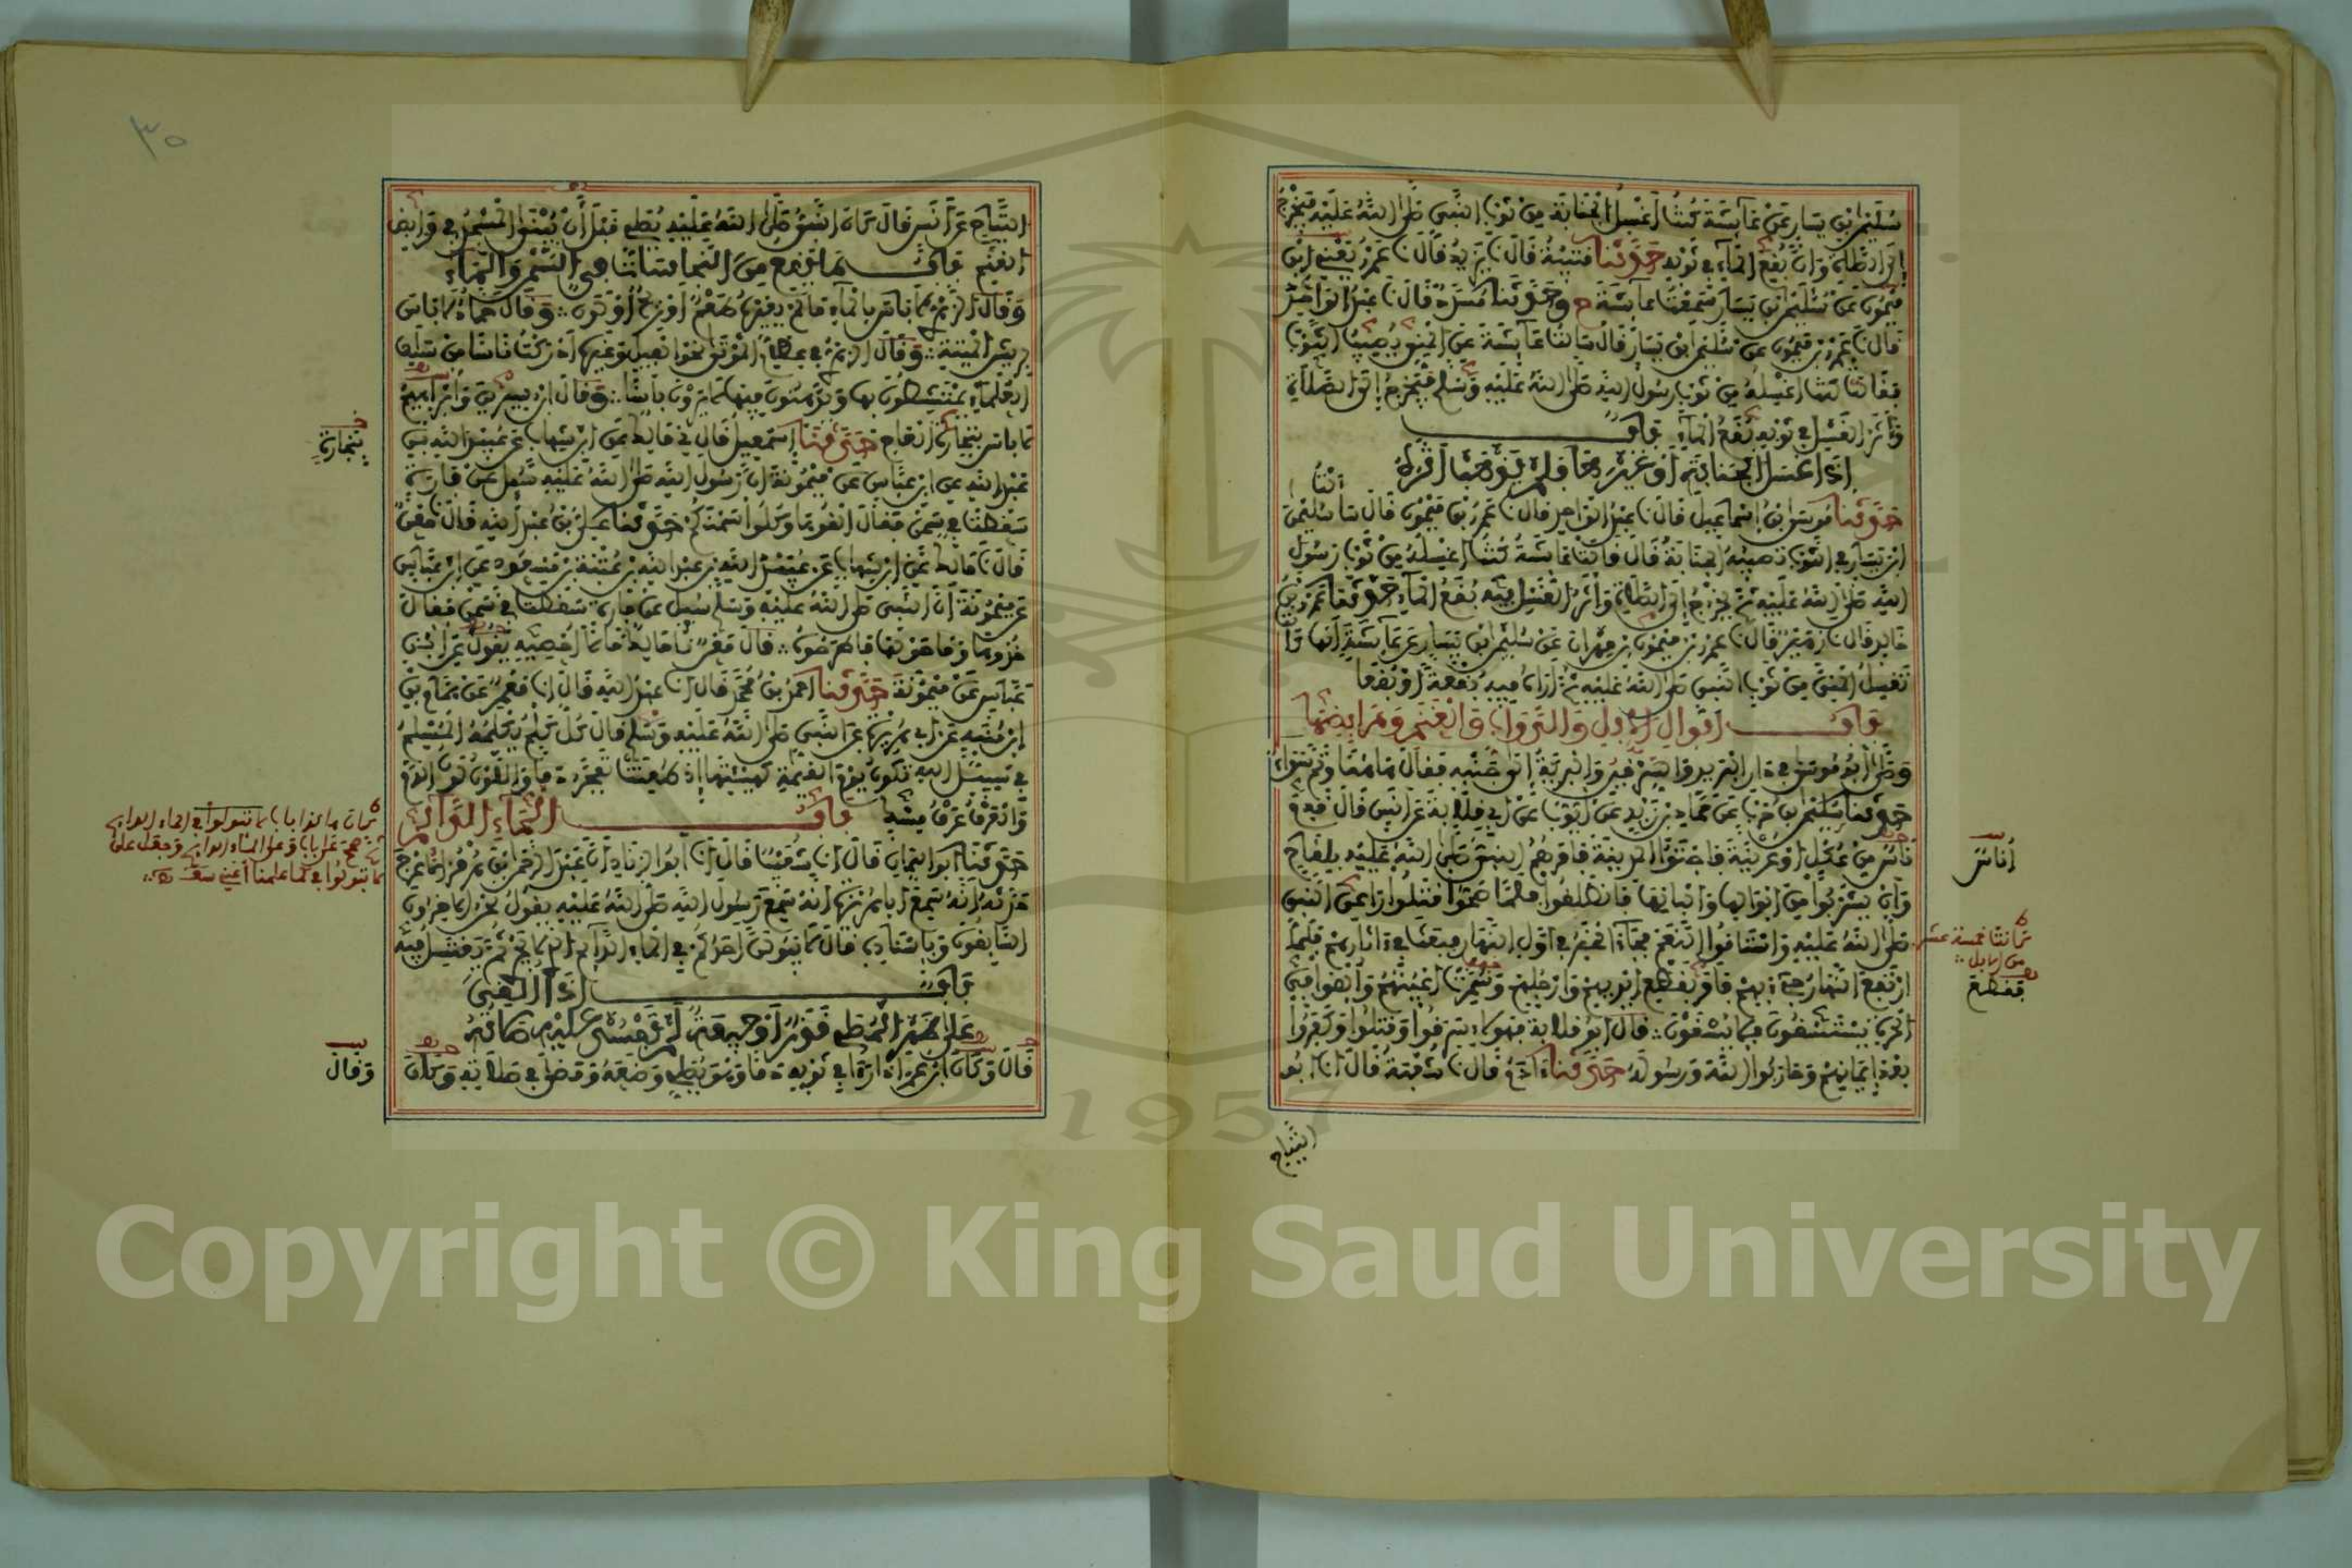 سليمن بن يسار عن عائشة كنت أغسل الجنابة من ثوب النبي صلى الله عليه فيخرج
إلى الصلاة وإن بقع الماء في ثوبه حدثنا قتيبة قال نا يزيد قال نا عمرو يعني ابن
ميمون عن سليمن بن يسار سمعت عائشة ح وحدثنا مسدد قال نا عبد الواحد
قال نا عمرو بن ميمون عن سليمن بن يسار قال سألت عائشة عن المني يصيب الثوب
فقالت كنت أغسله من ثوب رسول الله صلى الله عليه وسلم فيخرج إلى الصلاة
وأثر الغسل في ثوبه بقع الماء باب
إذا غسل الجنابة أو غيرها فلم يذهب أثره
حدثنا موسى بن إسماعيل قال نا عبد الواحد قال نا عمرو بن ميمون قال سألت سليمن
ابن يسار في الثوب تصيبه الجنابة قال قالت عائشة كنت أغسله من ثوب رسول
الله صلى الله عليه ثم يخرج إلى الصلاة وأثر الغسل فيه بقع الماء حدثنا عمرو بن
خالد قال نا زهير قال نا عمرو بن ميمون بن مهران عن سليمن بن يسار عن عائشة أنها كانت
تغسل المني من ثوب النبي صلى الله عليه ثم أراه فيه بقعة أو بقعا
باب أبوال الإبل والدواب والغنم ومرابضها
وصلى أبو موسى في دار البريد والسرقين والبرية إلى جنبه فقال هاهنا وثم سواء
حدثنا سليمن بن حرب عن حماد بن زيد عن أيوب عن أبي قلابة عن أنس قال قدم
ناس من عكل أو عرينة فاجتووا المدينة فأمرهم النبي صلى الله عليه بلقاح
وأن يشربوا من أبوالها وألبانها فانطلقوا فلما صحوا قتلوا راعي النبي
صلى الله عليه واستاقوا النعم فجاء الخبر في أول النهار فبعث في آثارهم فلما
ارتفع النهار جيء بهم فأمر بقطع أيديهم وأرجلهم وسمرت أعينهم وألقوا في
الحرة يستسقون فلا يسقون قال أبو قلابة فهؤلاء سرقوا وقتلوا وكفروا
بعد إيمانهم وحاربوا الله ورسوله حدثنا آدم قال نا شعبة قال انا أبو
التياح
أناس
كانت خمسة عشر
من الإبل
فقطع
٣٥
التياح عن أنس قال كان النبي صلى الله عليه يصلي قبل أن يبنى المسجد في مرابض
الغنم باب ما يقع من النجاسات في السمن والماء
وقال الزهري لا بأس بالماء ما لم يغيره طعم أو ريح أو لون وقال حماد لا بأس
بريش الميتة وقال الزهري في عظام الموتى نحو الفيل وغيره أدركت ناسا من سلف
العلماء يمتشطون بها ويدهنون فيها لا يرون بأسا وقال ابن سيرين وإبراهيم
لا بأس بتجارة العاج حدثنا إسمعيل قال ني مالك عن ابن شهاب عن عبيد الله بن
عبد الله عن ابن عباس عن ميمونة أن رسول الله صلى الله عليه سئل عن فارة
سقطت في سمن فقال ألقوها وما وكلوا سمنكم حدثنا علي بن عبد الله قال نا معن
قال نا مالك عن ابن شهاب عن عبيد الله بن عبد الله بن عتبة بن مسعود عن ابن عباس
عن ميمونة أن النبي صلى الله عليه وسلم سئل عن فارة سقطت في سمن فقال
خذوها وما حولها فاطرحوه قال معن نا مالك ما لا أحصيه يقول عن ابن
عباس عن ميمونة حدثنا أحمد بن محمد قال انا عبد الله قال انا معمر عن همام بن
ابن منبه عن أبي هريرة عن النبي صلى الله عليه وسلم قال كل كلم يكلمه المسلم
في سبيل الله تكون يوم القيمة كهيئتها إذ طعنت تفجر دما اللون لون الدم
والعرف عرف مسك باب الماء الدائم
حدثنا أبو اليمان قال انا شعيب قال انا أبو الزناد أن عبد الرحمن بن هرمز الأعرج
حدثه أنه سمع أبا هريرة أنه سمع رسول الله صلى الله عليه يقول نحن الآخرون
السابقون وبإسناده قال لا يبولن أحدكم في الماء الدائم الذي لا يجري ثم يغتسل فيه
باب إذا ألقي
على ظهر المصلي قذر أو جيفة لم تفسد عليه صلاته
قال وكان ابن عمر إذا رأى في ثوبه دما وهو يصلي وضعه ومضى في صلاته وكان
بتجارة
وقال